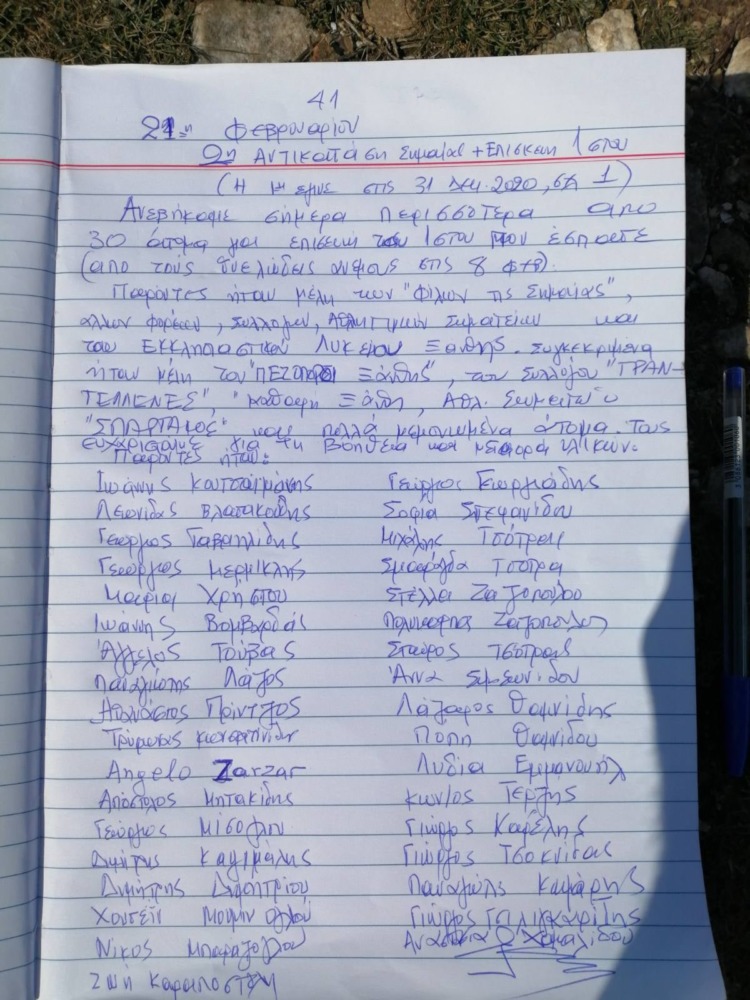 41
21η Φεβρουαρίου
9η Αντικατάσταση Σημαίας + Επισκευή Ιστού
(Η έγινε στις 31 Δεκ. 2020, 1)
Ανεβήκαμε σήμερα περισσότερα από
30 άτομα για επισκευή του Ιστού που έσπασε
(από τους θυελλώδεις ανέμους στις 8 Φεβ).
Παρόντες ήταν μέλη των "Φίλων της Σημαίας",
άλλων φορέων, Συλλόγων, Αθλητικών Σωματείων και
του Εκκλησιαστικού Λυκείου Ξάνθης. Συγκεκριμένα
ήταν μέλη του "ΠΕΖΟΠΟΡΟΙ Ξάνθης", του Συλλόγου "ΓΡΑΝ-
ΤΣΕΛΛΕΝΕΣ", "καθαρή Ξάνθη, Αθλ. Σωματείου
"ΣΠΑΡΤΑΚΟΣ" και πολλά μεμονωμένα άτομα. Τους
ευχαριστούμε για τη βοήθεια και μεταφορά υλικών.
Παρόντες ήταν:
Ιωάννης Γεώργιος Γεωργιάδης
Λεωνίδας Σοφία Στεφανίδου
Γεώργιος Μιχάλης Τσότρας
Γεώργιος Σμαράγδα Τσότρα
Μαρία Χρήστου Στέλλα
Ιωάννης Βομβορδάς
Άγγελος Τούβας Σταύρος Τσότρας
Παναγιώτης Λάζος Άννα Συμεωνίδου
Αθανάσιος Πρίντζος Λάζαρος Θωμαΐδης
Πόπη Θωμαΐδου
Angelo Zarzar Λυδία Εμμανουήλ
Απόστολος Μητακίδης Κων/ος Τερζής
Γεώργιος Γιώργος Καρέλης
Δημήτρης Γιώργος Τσοκνίδας
Δημήτρης Δημητρίου Παναγιώτης Καμάρης
Χουσεΐν Μουμίν ογλού Γιώργος
Νίκος Αναστασία Χαμαλίδου
Ζωή Καραποστόλη